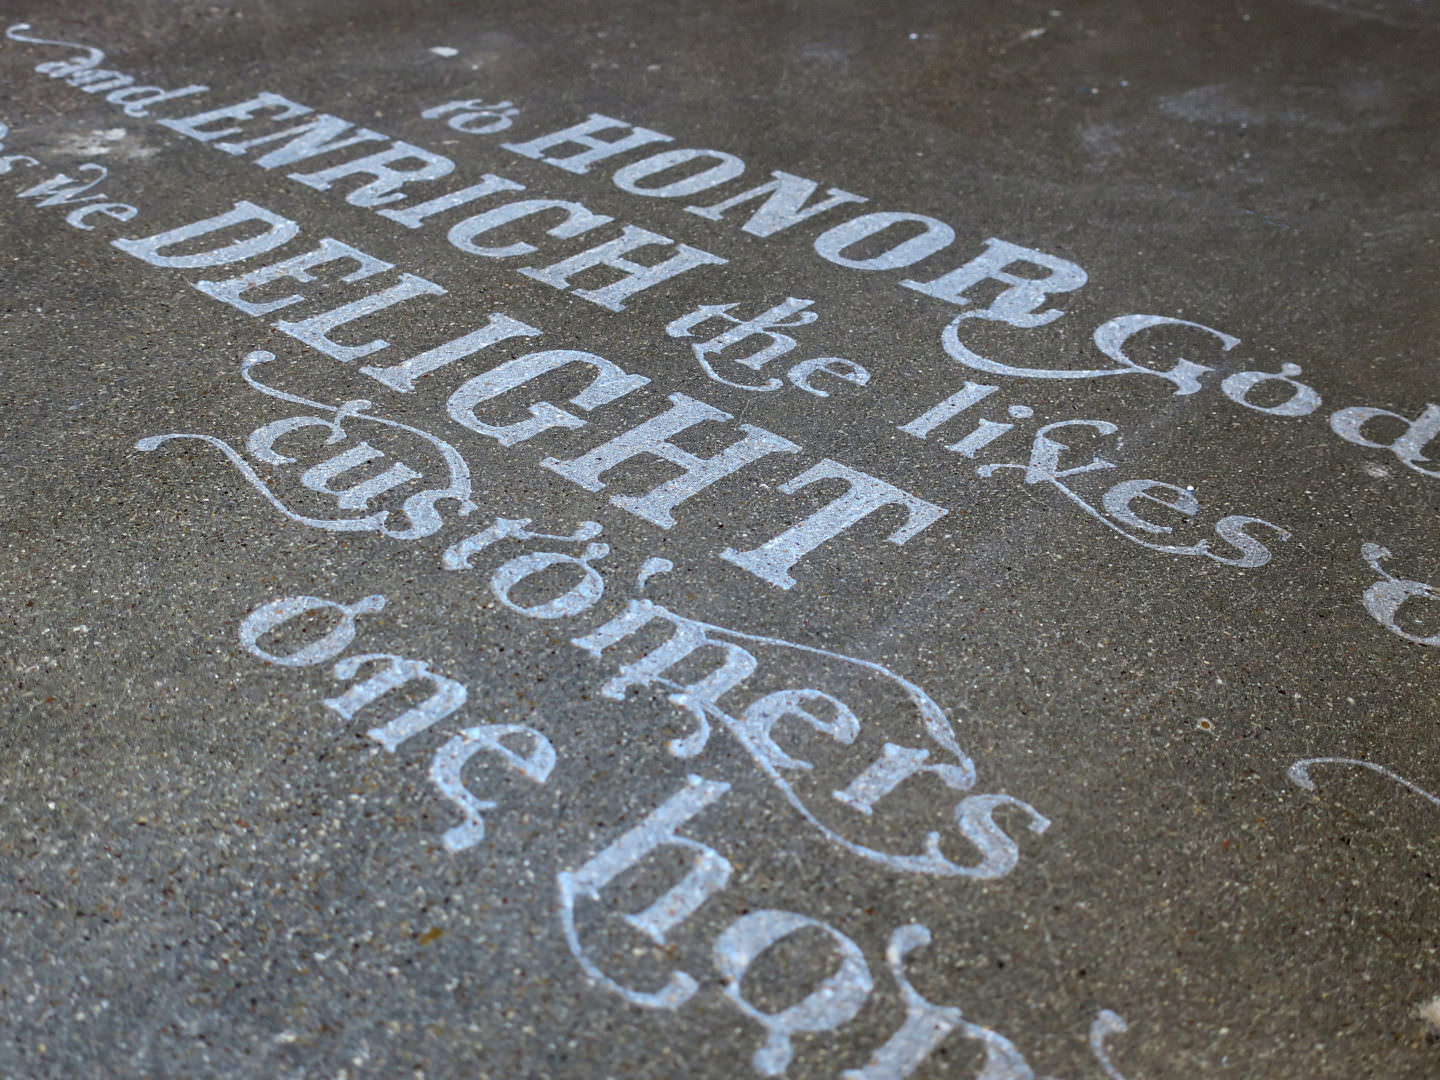 to HONOR God
and ENRICH the lives
as we DELIGHT
customers
one